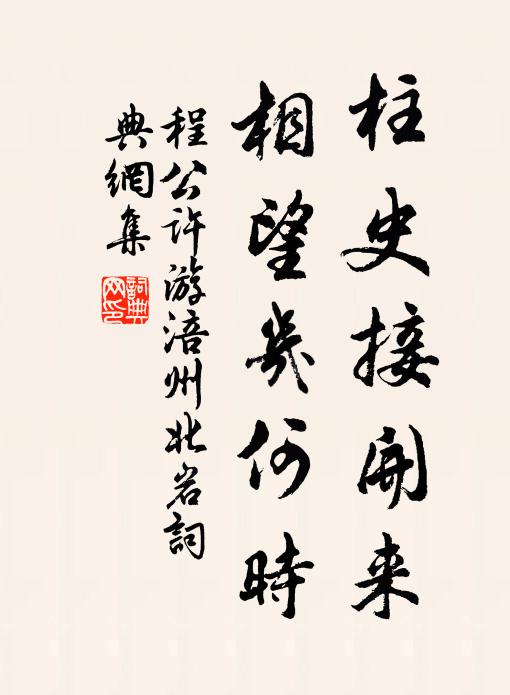 柱史接開来
相望幾何時
程公許游涪州北岩詞
典網集
詞典
网印